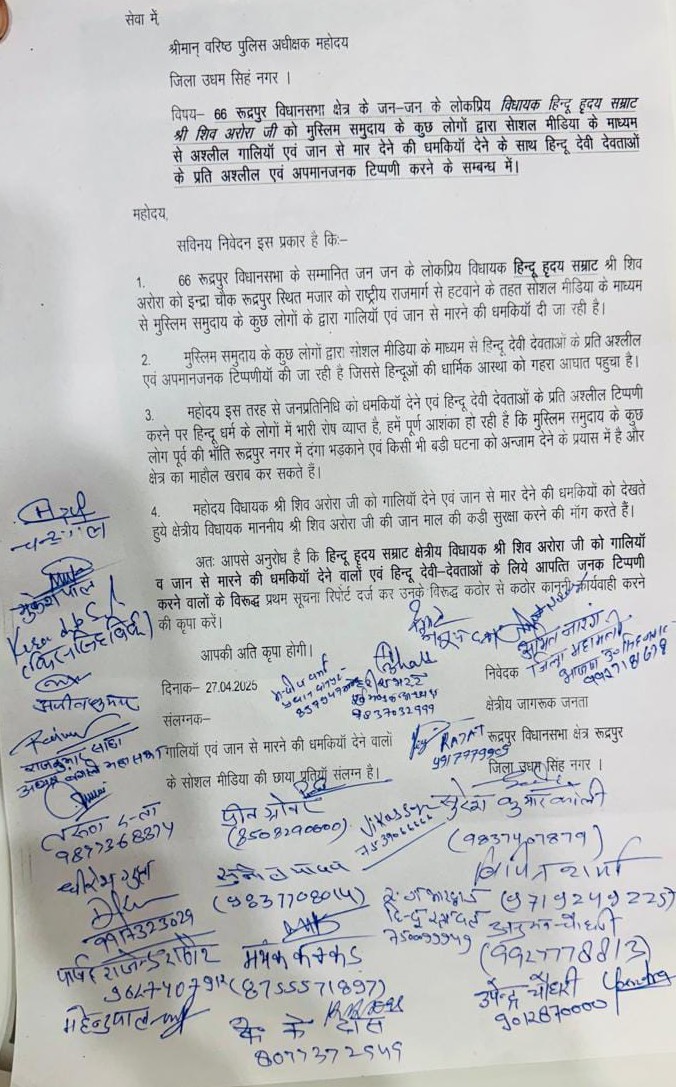 सेवा में,
श्रीमान् वरिष्ठ पुलिस अधीक्षक महोदय
जिला उधम सिहं नगर ।
विषय– 66 रूद्रपुर विधानसभा क्षेत्र के जन–जन के लोकप्रिय विधायक हिन्दू हृदय सम्राट
श्री शिव अरोरा जी को मुस्लिम समुदाय के कुछ लोगों द्वारा सोशल मीडिया के माध्यम
से अश्लील गालियाँ एवं जान से मार देने की धमकियाँ देने के साथ हिन्दू देवी देवताओं
के प्रति अश्लील एवं अपमानजनक टिप्पणी करने के सम्बन्ध में।
महोदय,
सविनय निवेदन इस प्रकार है कि:–
1. 66 रूद्रपुर विधानसभा के सम्मानित जन जन के लोकप्रिय विधायक हिन्दू हृदय सम्राट श्री शिव
अरोरा को इन्द्रा चौक रूद्रपुर स्थित मजार को राष्ट्रीय राजमार्ग से हटवाने के तहत सोशल मीडिया के माध्यम
से मुस्लिम समुदाय के कुछ लोगों के द्वारा गालियाँ एवं जान से मारने की धमकियाँ दी जा रही है।
2. मुस्लिम समुदाय के कुछ लोगों द्वारा सोशल मीडिया के माध्यम से हिन्दू देवी देवताओं के प्रति अश्लील
एवं अपमानजनक टिप्पणीयाँ की जा रही है जिससे हिन्दूओं की धार्मिक आस्था को गहरा आघात पहुचा है।
3. महोदय इस तरह से जनप्रतिनिधि को धमकियाँ देने एवं हिन्दू देवी देवताओं के प्रति अश्लील टिप्पणी
करने पर हिन्दू धर्म के लोगों में भारी रोष व्याप्त है, हमें पूर्ण आशंका हो रही है कि मुस्लिम समुदाय के कुछ
लोग पूर्व की भाँति रूद्रपुर नगर में दंगा भड़काने एवं किसी भी बडी घटना को अन्जाम देने के प्रयास में है और
क्षेत्र का माहौल खराब कर सकते हैं।
4. महोदय विधायक श्री शिव अरोरा जी को गालियाँ देने एवं जान से मार देने की धमकियों को देखते
हुये क्षेत्रीय विधायक माननीय श्री शिव अरोरा जी की जान माल की कडी सुरक्षा करने की माँग करते हैं।
अतः आपसे अनुरोध है कि हिन्दू हृदय सम्राट क्षेत्रीय विधायक श्री शिव अरोरा जी को गालियाँ
व जान से मारने की धमकियाँ देने वालों एवं हिन्दू देवी–देवताओं के लिये आपत्ति जनक टिप्पणी
करने वालों के विरूद्ध प्रथम सूचना रिपोर्ट दर्ज कर उनके विरूद्ध कठोर से कठोर कानूनी कार्यवाही करने
की कृपा करें।
आपकी अति कृपा होगी।
दिनाक– 27.04.2025
निवेदक
संलग्नक–
क्षेत्रीय जागरूक जनता
गालियाँ एवं जान से मारने की धमकियाँ देने वालों
रूद्रपुर विधानसभा क्षेत्र रूद्रपुर
के सोशल मीडिया की छाया प्रतियाँ संलग्न है।
जिला उधम सिंह नगर ।
मुकेश पाल
9837032999
RAJAT
राजकुमार साहा
सुरेश कुमार कोली
(9837407879)
(8508290000)
9897368874
धीरेश गुप्ता
(9837708014)
(9719249225)
9917323029
(9927778813)
पार्षद राजेन्द्र राठौर
मयंक कक्कड़
(8755571897)
उपेन्द्र चौधरी
9012870000
महेन्द्रपाल
के के दास
8077372949